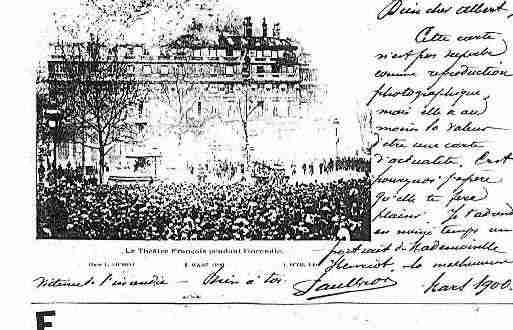 Bien cher Albert,
Cette carte
n'est pas
comme reproduction
photographique,
mais elle a au
moins la valeur
d'être une carte
d'actualité. C'est
pourquoi j'espère
qu'elle te fera
plaisir. Je t'
en même temps un
Le Théâtre Français pendant l'incendie.
portrait de Mademoiselle
Henriot, la malheureuse
victime de l'incendie — Bien à toi
Mars 1900
E